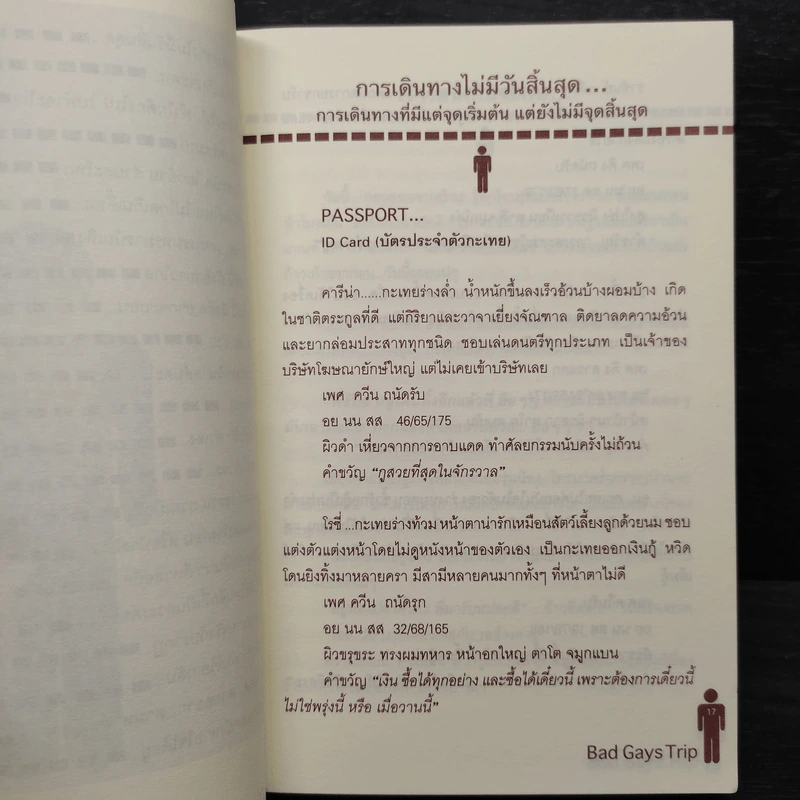 การเดินทางไม่มีวันสิ้นสุด...
การเดินทางที่มีแต่จุดเริ่มต้น แต่ยังไม่มีจุดสิ้นสุด
PASSPORT...
ID Card (บัตรประจำตัวกะเทย)
คารีน่า......กะเทยร่างล่ำ น้ำหนักขึ้นลงเร็วอ้วนบ้างผอมบ้าง เกิด
ในชาติตระกูลที่ดี แต่กิริยาและวาจาเยี่ยงจัณฑาล ติดยาลดความอ้วน
และยากล่อมประสาททุกชนิด ชอบเล่นดนตรีทุกประเภท เป็นเจ้าของ
บริษัทโฆษณายักษ์ใหญ่ แต่ไม่เคยเข้าบริษัทเลย
เพศ ควีน ถนัดรับ
อย นน สส 46/65/175
ผิวดำ เหี่ยวจากการอาบแดด ทำศัลยกรรมนับครั้งไม่ถ้วน
คำขวัญ “กูสวยที่สุดในจักรวาล”
โรซี่ ...กะเทยร่างท้วม หน้าตาน่ารักเหมือนสัตว์เลี้ยงลูกด้วยนม ชอบ
แต่งตัวแต่งหน้าโดยไม่ดูหนังหน้าของตัวเอง เป็นกะเทยออกเงินกู้ หวิด
โดนยิงทิ้งมาหลายครา มีสามีหลายคนมากทั้งๆ ที่หน้าตาไม่ดี
เพศ ควีน ถนัดรุก
อย นน สส 32/68/165
ผิวขรุขระ ทรงผมทหาร หน้าอกใหญ่ ตาโต จมูกแบน
คำขวัญ “เงิน ซื้อได้ทุกอย่าง และซื้อได้เดี๋ยวนี้ เพราะต้องการเดี๋ยวนี้
ไม่ใช่พรุ่งนี้ หรือ เมื่อวานนี้”
17
Bad Gays Trip